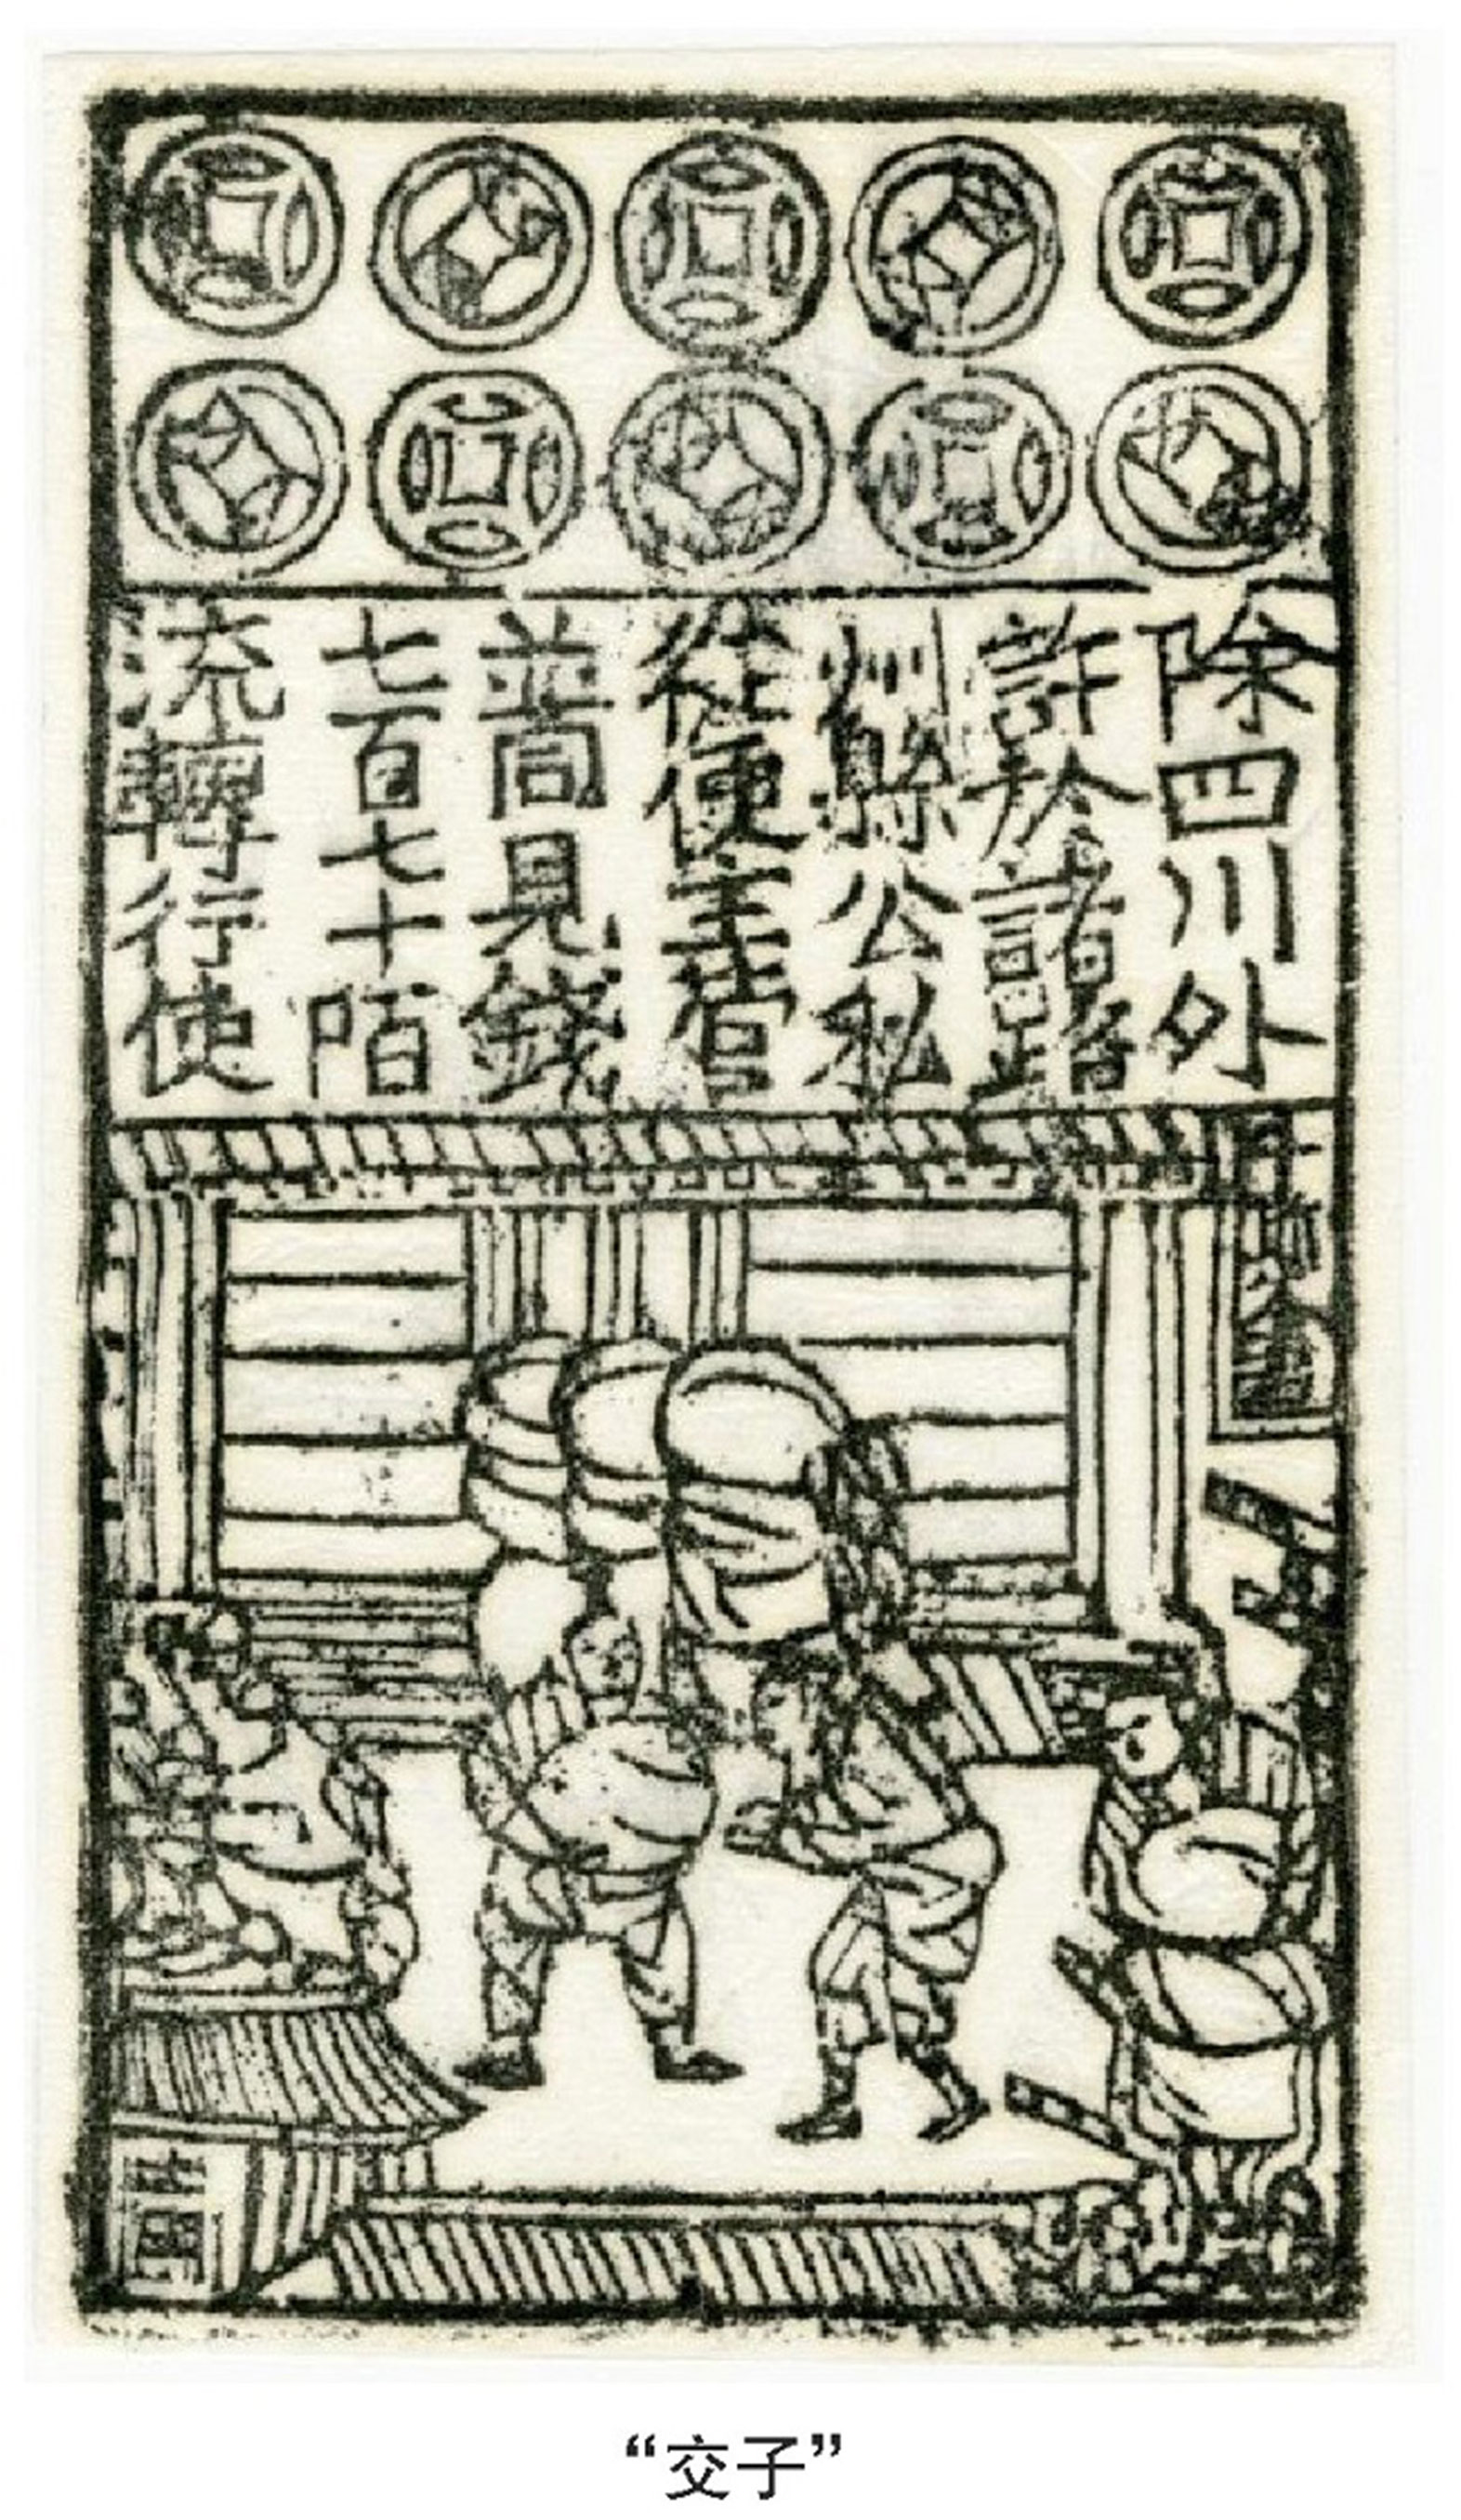 除四川外
許於諸路
州縣公私
從便主管
並同見錢
七百七十陌
流轉行使
“交子”